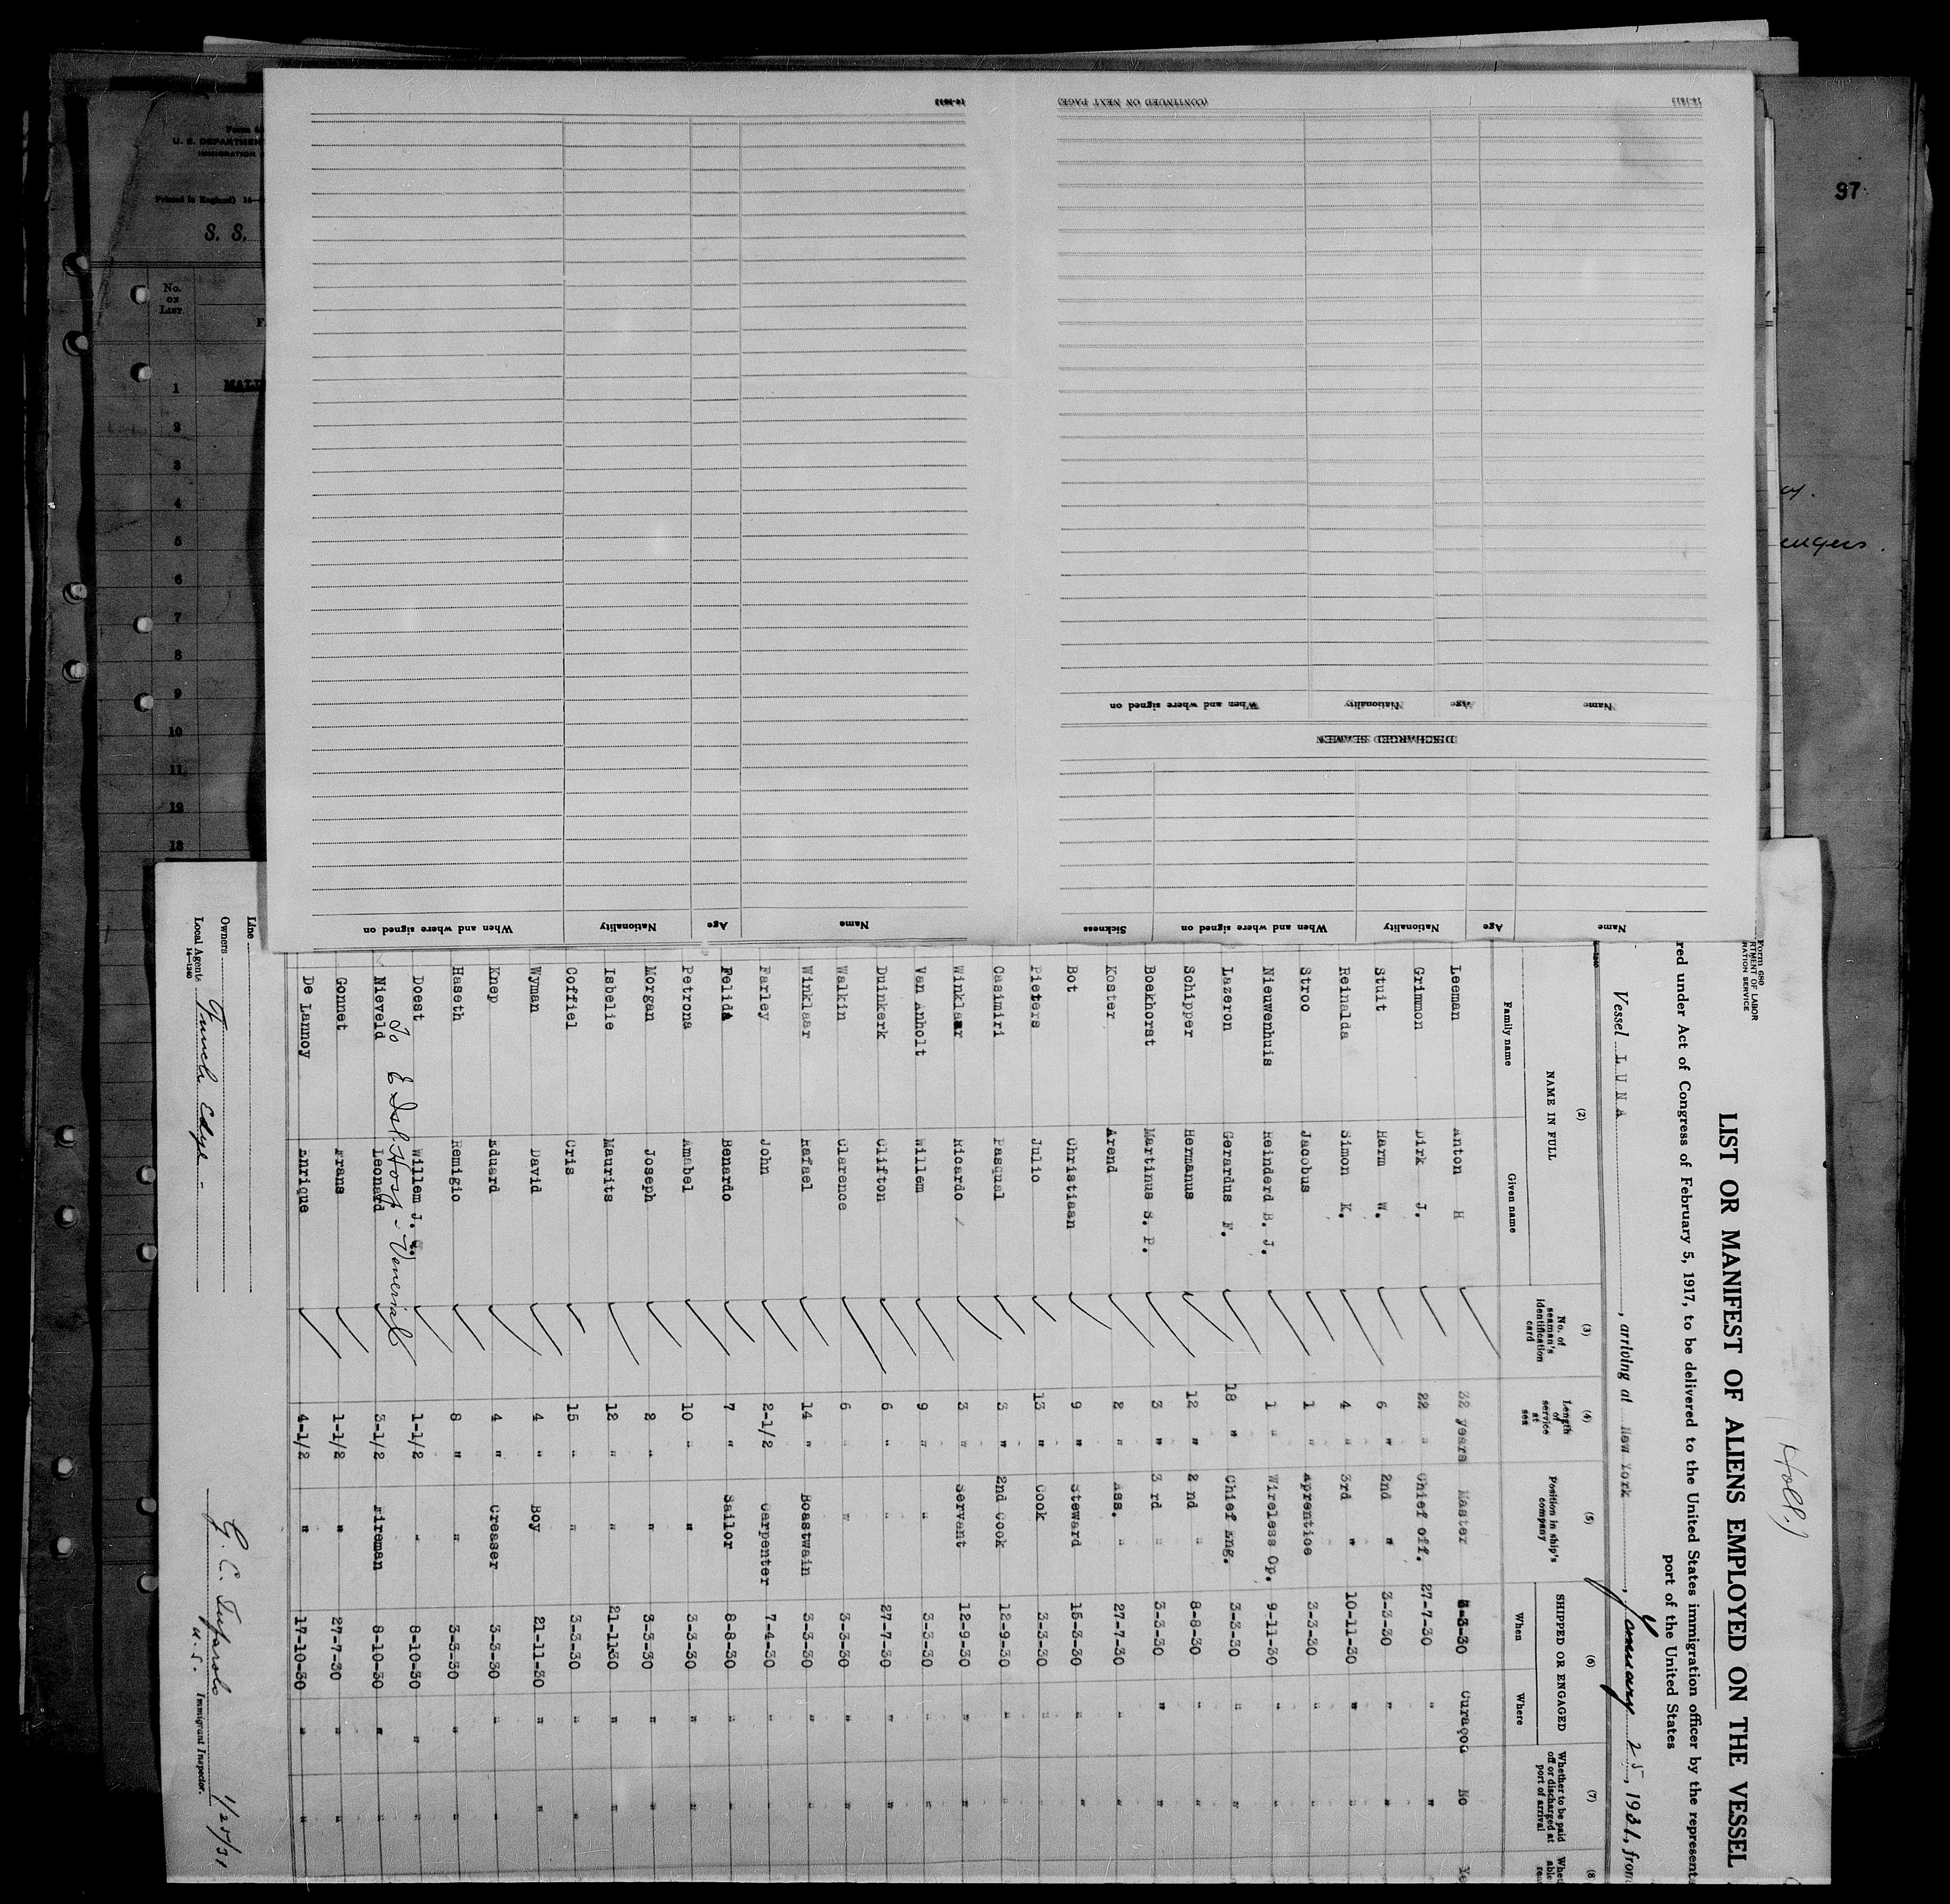 97
Form 6
U. S. DEPARTMEN
IMMIGRATION
Printed in England) 14—
S. S.
No.
on
List.
F
1
2
3
4
5
6
7
8
9
10
11
12
13
16-1612
(CONTINUED ON NEXT PAGE)
When and where signed on Nationality Age Name
DISCHARGED SEAMEN
Name Age Nationality When and where signed on
Name Age Nationality When and where signed on Sickness
Form 680
RTMENT OF LABOR
RATION SERVICE
(Holl.)
LIST OR MANIFEST OF ALIENS EMPLOYED ON THE VESSEL
red under Act of Congress of February 5, 1917, to be delivered to the United States immigration officer by the represent
port of the United States
Vessel L U N A, arriving at New York, January 25, 1931, from
(2) NAME IN FULL
Family name Given name
(3) No. of seaman's identification card
(4) Length of service at sea
(5) Position in ship's company
(6) SHIPPED OR ENGAGED
When Where
(7) Whether to be paid off or discharged at port of arrival
(8
Leeman Anton H 32 years Master 3-3-30 Curaçao No Ye
Grimmon Dirk J. 22 " Chief off. 27-7-30 " "
Stuit Harm W. 6 " 2nd " 3-3-30 " "
Reinalda Simon K. 4 " 3rd " 10-11-30 " "
Stroo Jacobus 1 " Aprentice 3-3-30 " "
Nieuwenhuis Reinderd B. J. 1 " Wireless Op. 9-11-30 " "
Lazeron Gerardus F. 18 " Chief Eng. 3-3-30 " "
Schipper Hermanus 12 " 2 nd " 8-8-30 " "
Boekhorst Martinus S. P. 3 " 3 rd " 3-3-30 " "
Koster Arend 2 " Ass. " 27-7-30 " "
Bot Christiaan 9 " Steward 15-3-30 " "
Pieters Julio 13 " Cook 3-3-30 "
Casimiri Pasqual 3 " 2nd Cook 12-9-30 " "
Winklaar Ricardo 3 " Servant 12-9-30 " "
Van Anholt Willem 9 " " 3-3-30 " "
Duinkerk Clifton 6 " " 27-7-30 " "
Walkin Clarence 6 " " 3-3-30 " "
Winklaar Rafael 14 " Boastwain 3-3-30 " "
Farley John 2-1/2 Carpenter 7-4-30 " "
Felida Benardo 7 " Sailor 8-8-30 " "
Petrona Amabel 10 " " 3-3-30 " "
Morgan Joseph 2 " " 3-3-30 " "
Isbelie Maurits 12 " " 21-1130 " "
Coffiel Cris 15 " " 3-3-30 " "
Wyman David 4 " Boy 21-11-30 " "
Knep Eduard 4 " Greaser 3-3-30 " "
Haseth Remigio 8 " " 3-3-30 " "
Doest Willem J. G. 1-1/2 " 8-10-30 " "
To E Isl Hosp - Venerial
Nieveld Leonard 3-1/2 Fireman 8-10-30 " "
Gonnet Frans 1-1/2 " 27-7-30 " "
De Lannoy Enrique 4-1/2 " 17-10-30 " "
Line
Owners
Local Agents Funch Edye -
14—1240
U.S. Immigrant Inspector. 1/25/31